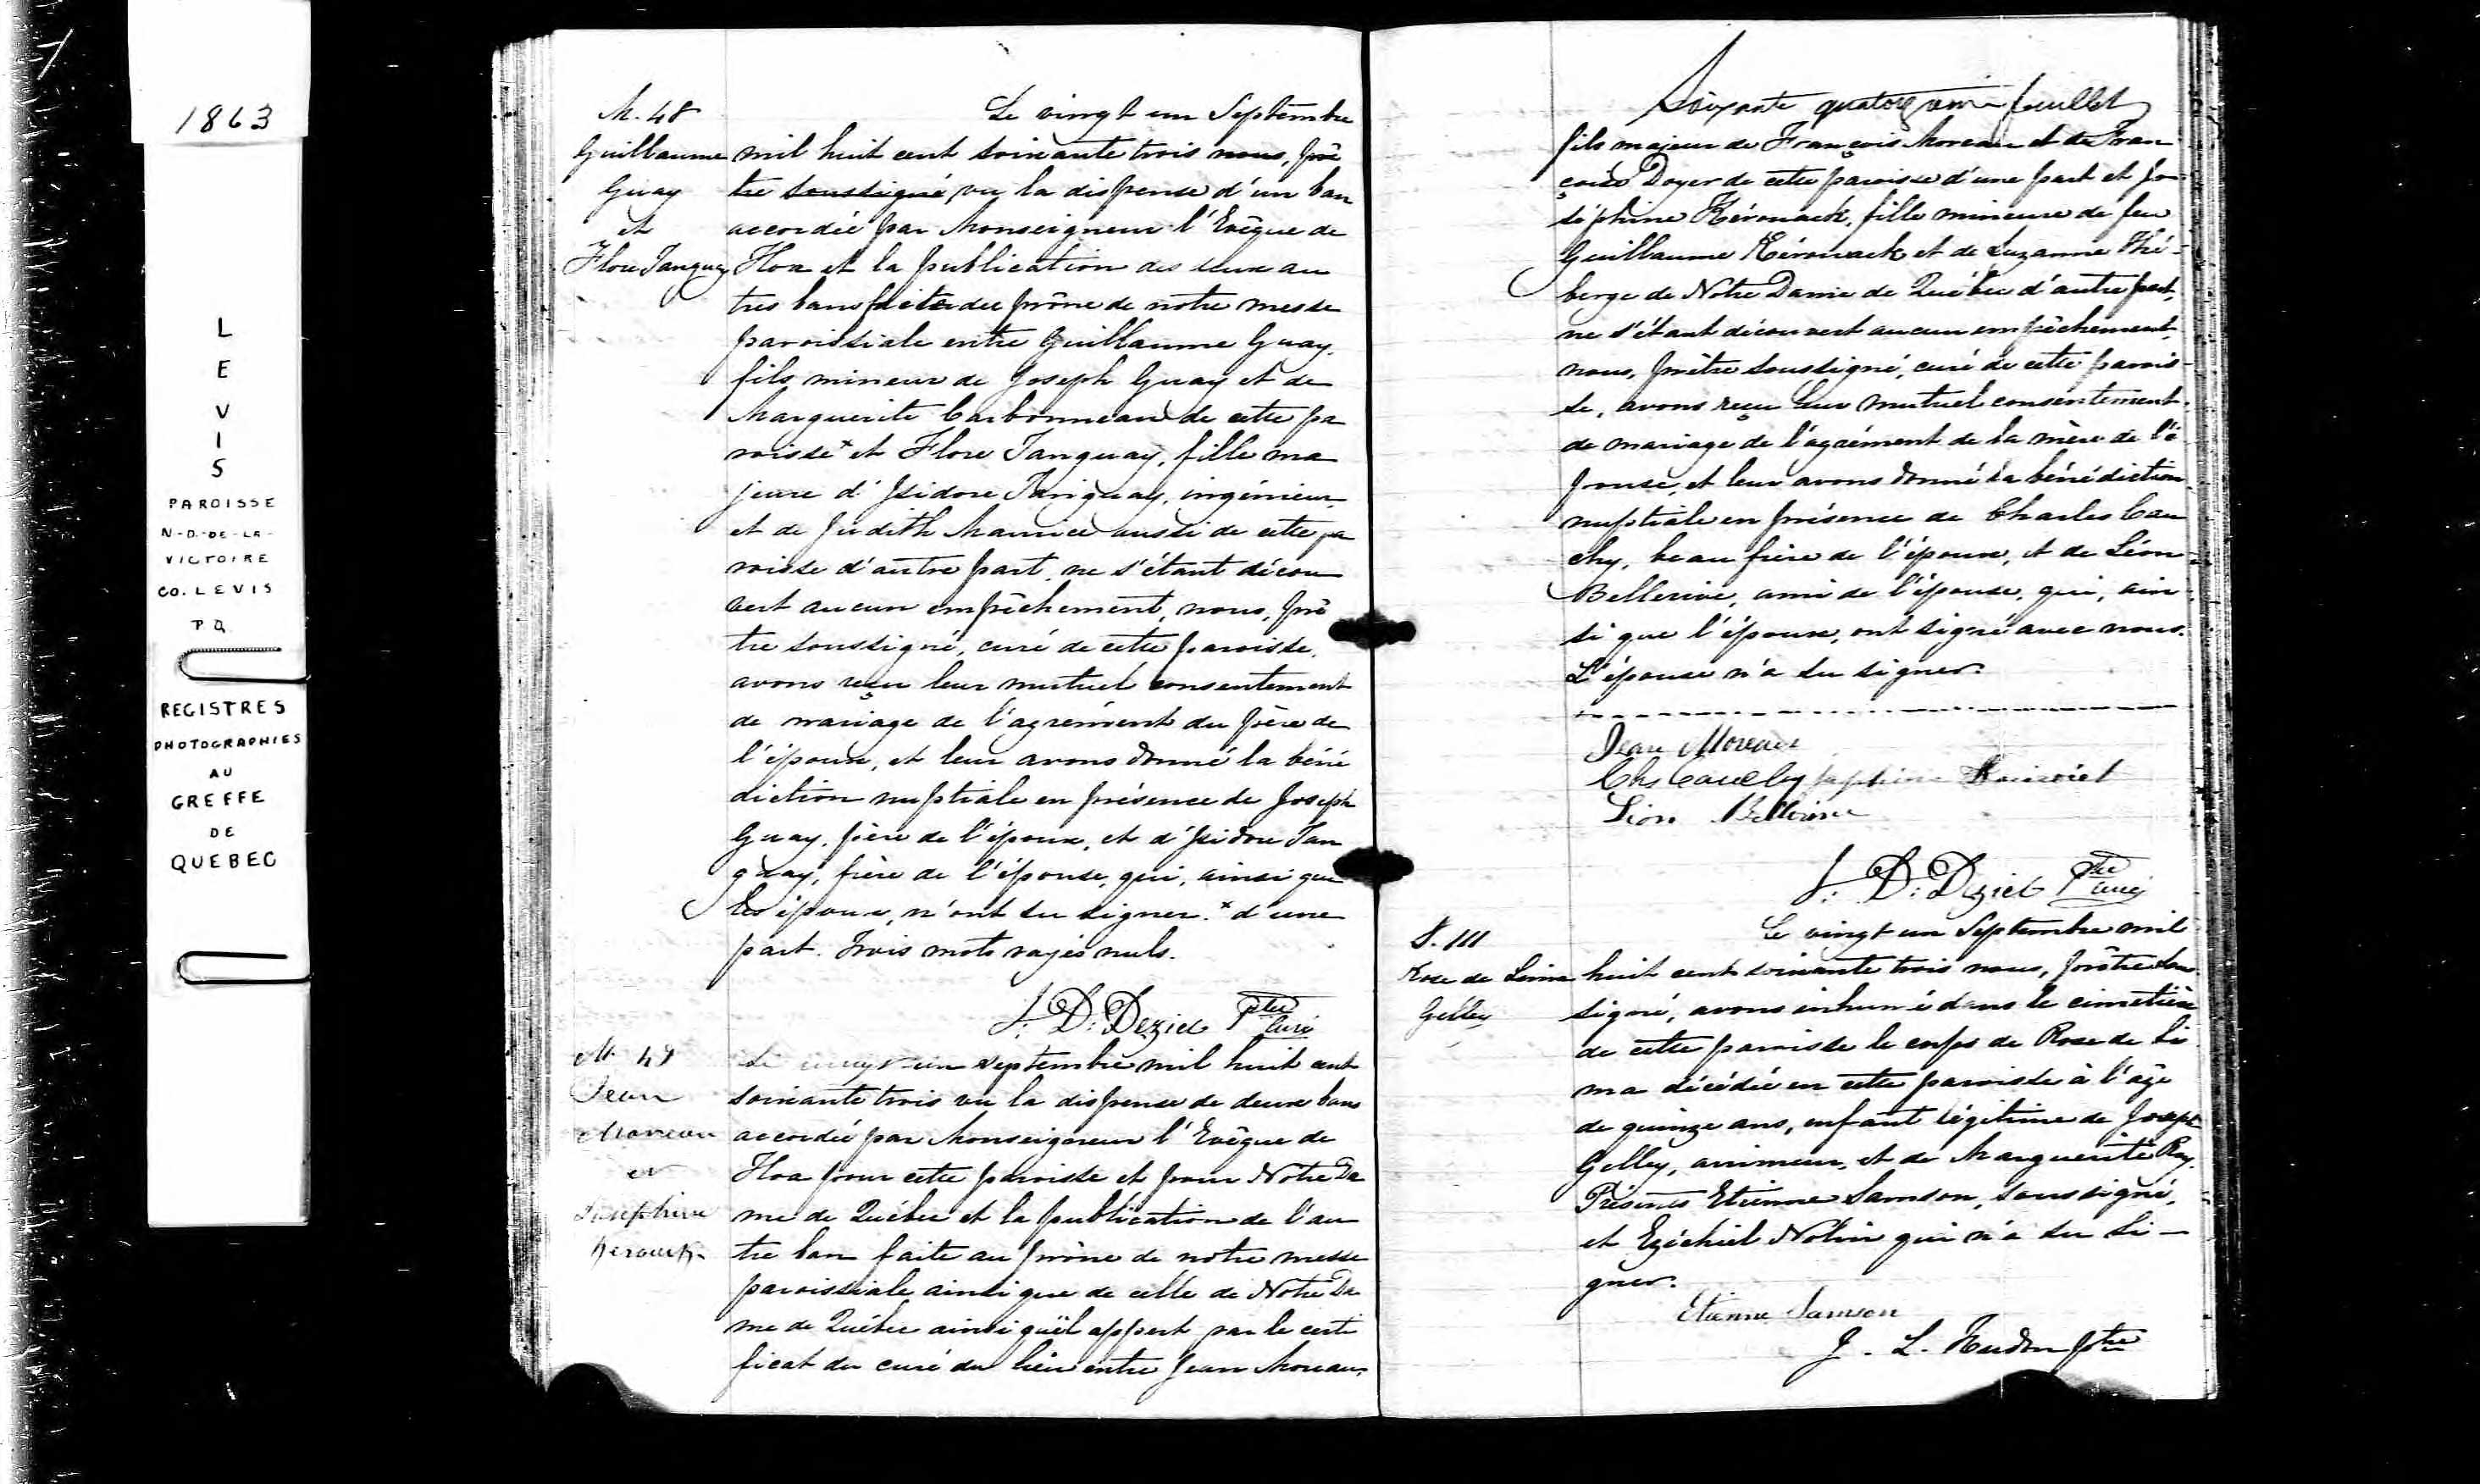 1863
L
E
V
I
S
PAROISSE
N-D-DE-LA-
VICTOIRE
CO. LEVIS
P Q
REGISTRES
PHOTOGRAPHIES
AU
GREFFE
DE
QUEBEC
M. 48
Guillaume
Guay
et
Flore Tanguay
Le vingt un Septembre
mil huit cent soixante trois nous, prê
tre soussigné vu la dispense d'un ban
accordée par Monseigneur l'Evêque de
Tloa et la publication des deux au
tres bans faite du prône de notre messe
paroissiale entre Guillaume Guay,
fils mineur de Joseph Guay et de
Marguerite Carbonneau de cette pa
roisse* et Flore Tanguay, fille ma
jeure d'Isidore Tanguay, ingénieur,
et de Judith Maurice aussi de cette pa
roisse d'autre part, ne s'étant décou
vert aucun empêchement, nous, prê
tre soussigné, curé de cette paroisse,
avons reçu leur mutuel consentement
de mariage de l'agrément du père de
l'époux, et leur avons donné la béné
diction nuptiale en présence de Joseph
Guay, père de l'époux, et d'Isidore Tan
guay, frère de l'épouse, qui, ainsi que
les époux, n'ont su signer. * d'une
part. Trois mots rayés nuls.
J. D. Deziel Ptre Curé
M 49
Jean
Moreau
et
Josephine
Kerouack
Le vingt un septembre mil huit cent
soixante trois vu la dispense de deux bans
accordée par Monseigneur l'Evêque de
Tloa pour cette paroisse et pour Notre Da
me de Québec et la publication de l'au
tre ban faite au prône de notre messe
paroissiale ainsi que de celle de Notre Da
me de Québec ainsi qu'il appert par le certi
ficat du curé du lieu entre Jean Moreau,
Soixante quatorzième feuillet
fils majeur de François Moreau et de Fran
çoise Doyer de cette paroisse d'une part et Jo-
séphine Kérouack, fille mineure de feu
Guillaume Kérouack et de Suzanne Thé-
berge de Notre Dame de Québec d'autre part,
ne s'étant découvert aucun empêchement,
nous, prêtre soussigné, curé de cette parois-
se, avons reçu leur mutuel consentement
de mariage de l'agrément de la mère de l'é
pouse, et leur avons donné la bénédiction
nuptiale en présence de Charles Cau
chy, beau frère de l'époux, et de Léon
Bellerive, ami de l'épouse, qui, ain
si que l'époux, ont signé avec nous.
L'épouse n'a su signer.
Jean Moreau
Chs Cauchy Josephine
Léon Bellerive
J. D. Deziel Ptre Curé
S. 111
Rose de Lima
Gelley
Le vingt un Septembre mil
huit cent soixante trois nous, prêtre sous
signé, avons inhumé dans le cimetière
de cette paroisse le corps de Rose de Li
ma décédée en cette paroisse à l'âge
de quinze ans, enfant légitime de Joseph
Gelley, arrimeur, et de Marguerite Roy.
Présents Etienne Samson, soussigné,
et Ezéchiel Nolin qui n'a su si-
gner.
Etienne Samson
J. L. Hudon Ptre